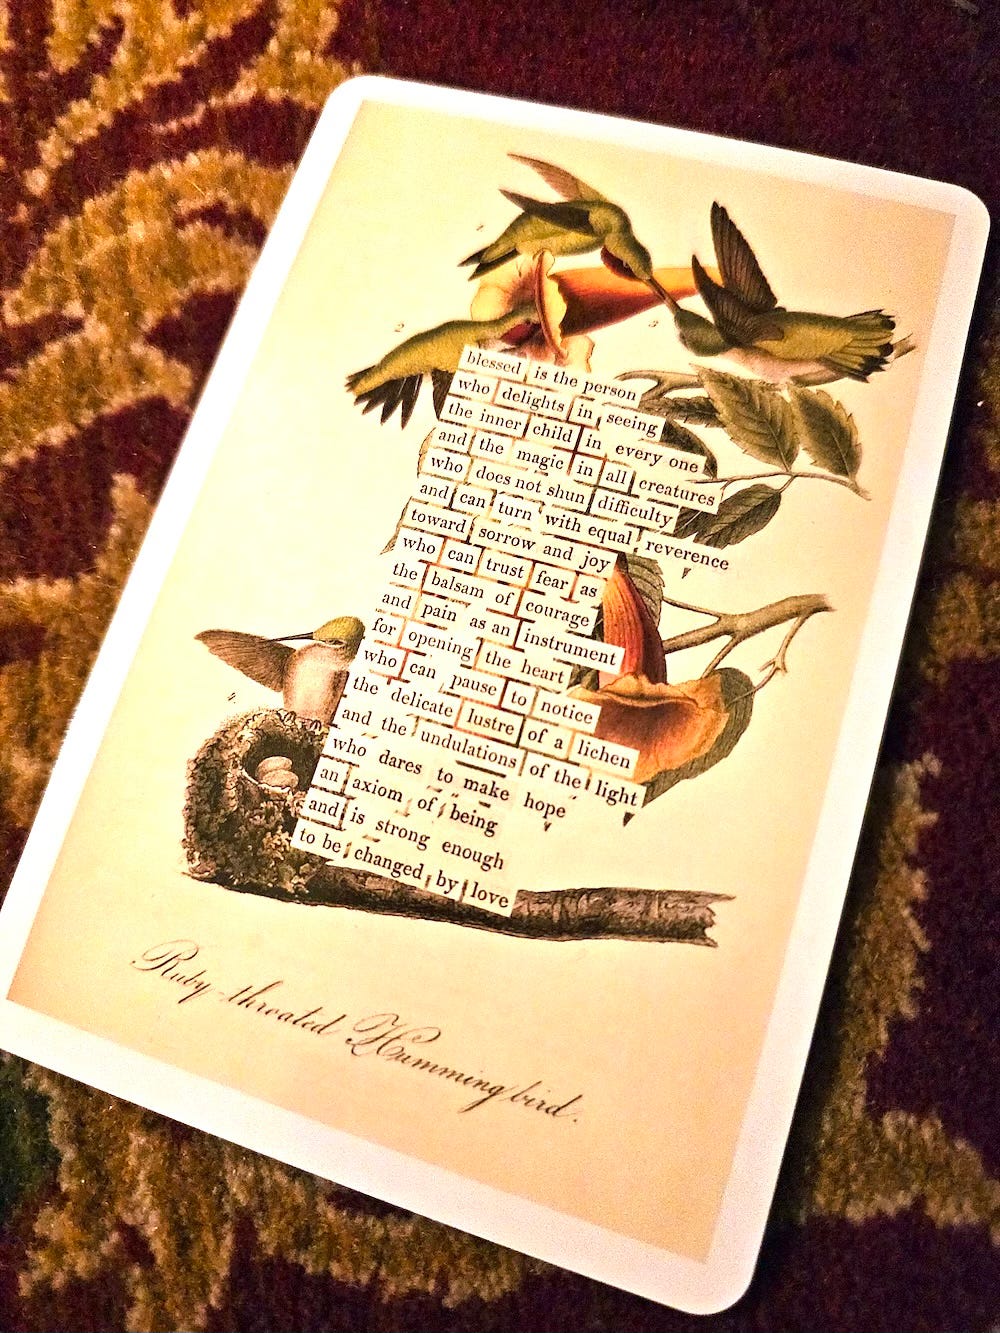 blessed is the person
who delights in seeing
the inner child in every one
and the magic in all creatures
who does not shun difficulty
and can turn with equal reverence
toward sorrow and joy
who can trust fear as
the balsam of courage
and pain as an instrument
for opening the heart
who can pause to notice
the delicate lustre of a lichen
and the undulations of the light
who dares to make hope
an axiom of being
and is strong enough
to be changed by love
2
3
4
Ruby-throated Humming bird.